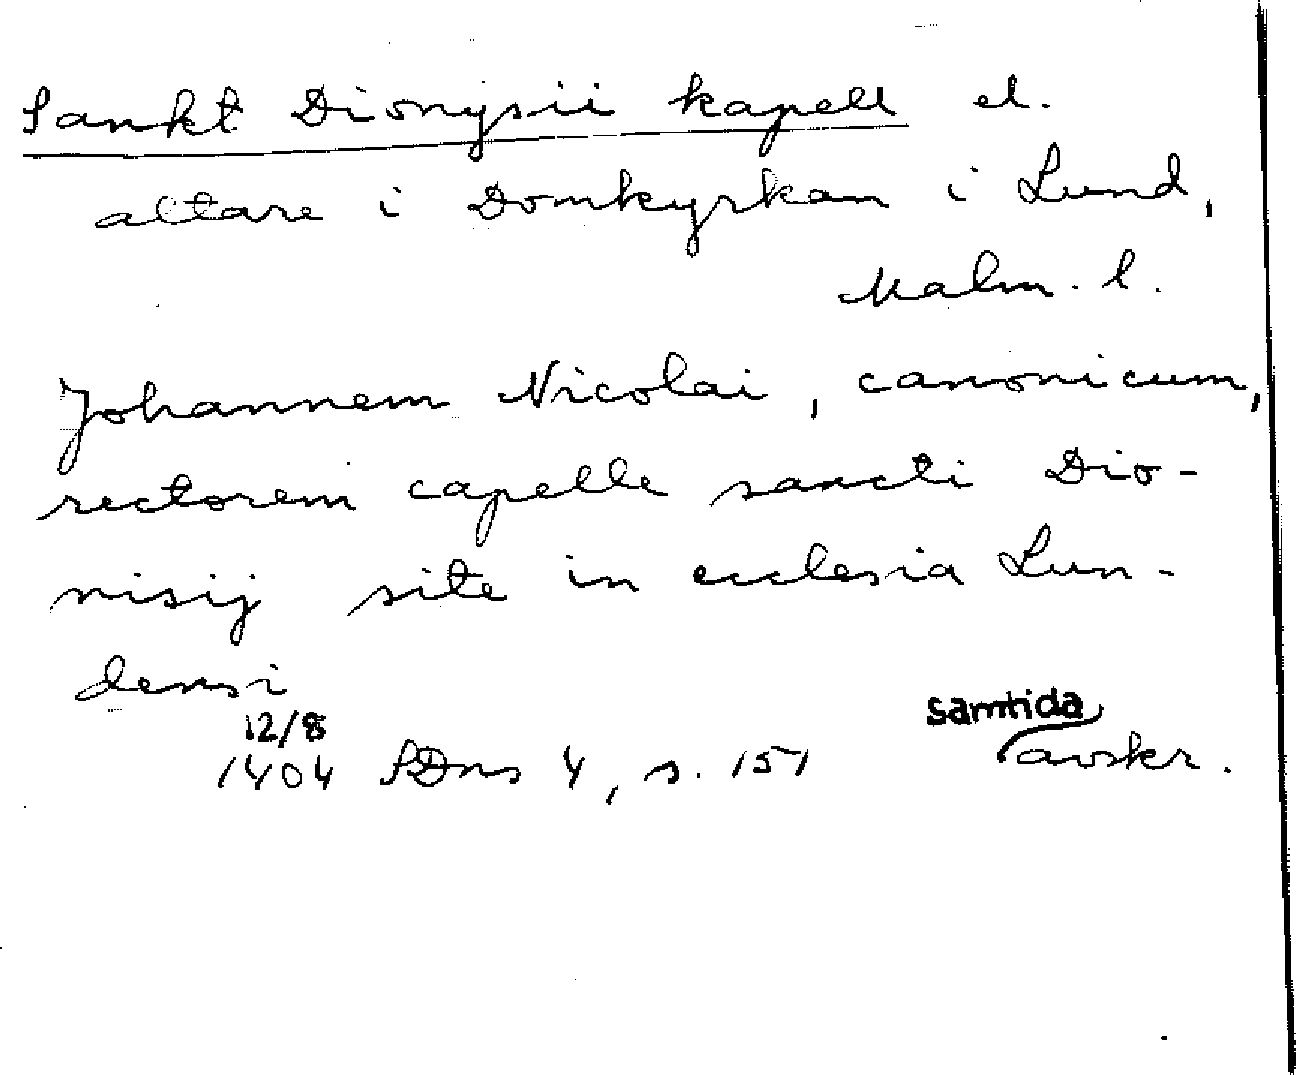 Sankt Dionysii kapell el.
altare i Domkyrkan i Lund,
Malm. l.
Johannem Nicolai, canonicum,
rectorem capelle sancti Dio-
nisij site in ecclesia Lun-
densi
12/8 samtida
1404 SDns 4, s. 151 avskr.